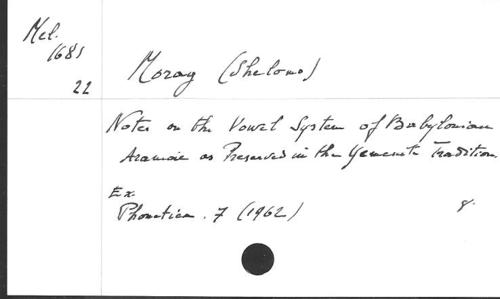 Mel.
1681
22
Moray (Shelomo)
Notes on the Vowel System of Babylonian
Aramaic as Preserved in the Yemenite Tradition.
Ex.
Phonetica. 7 (1962)
8.